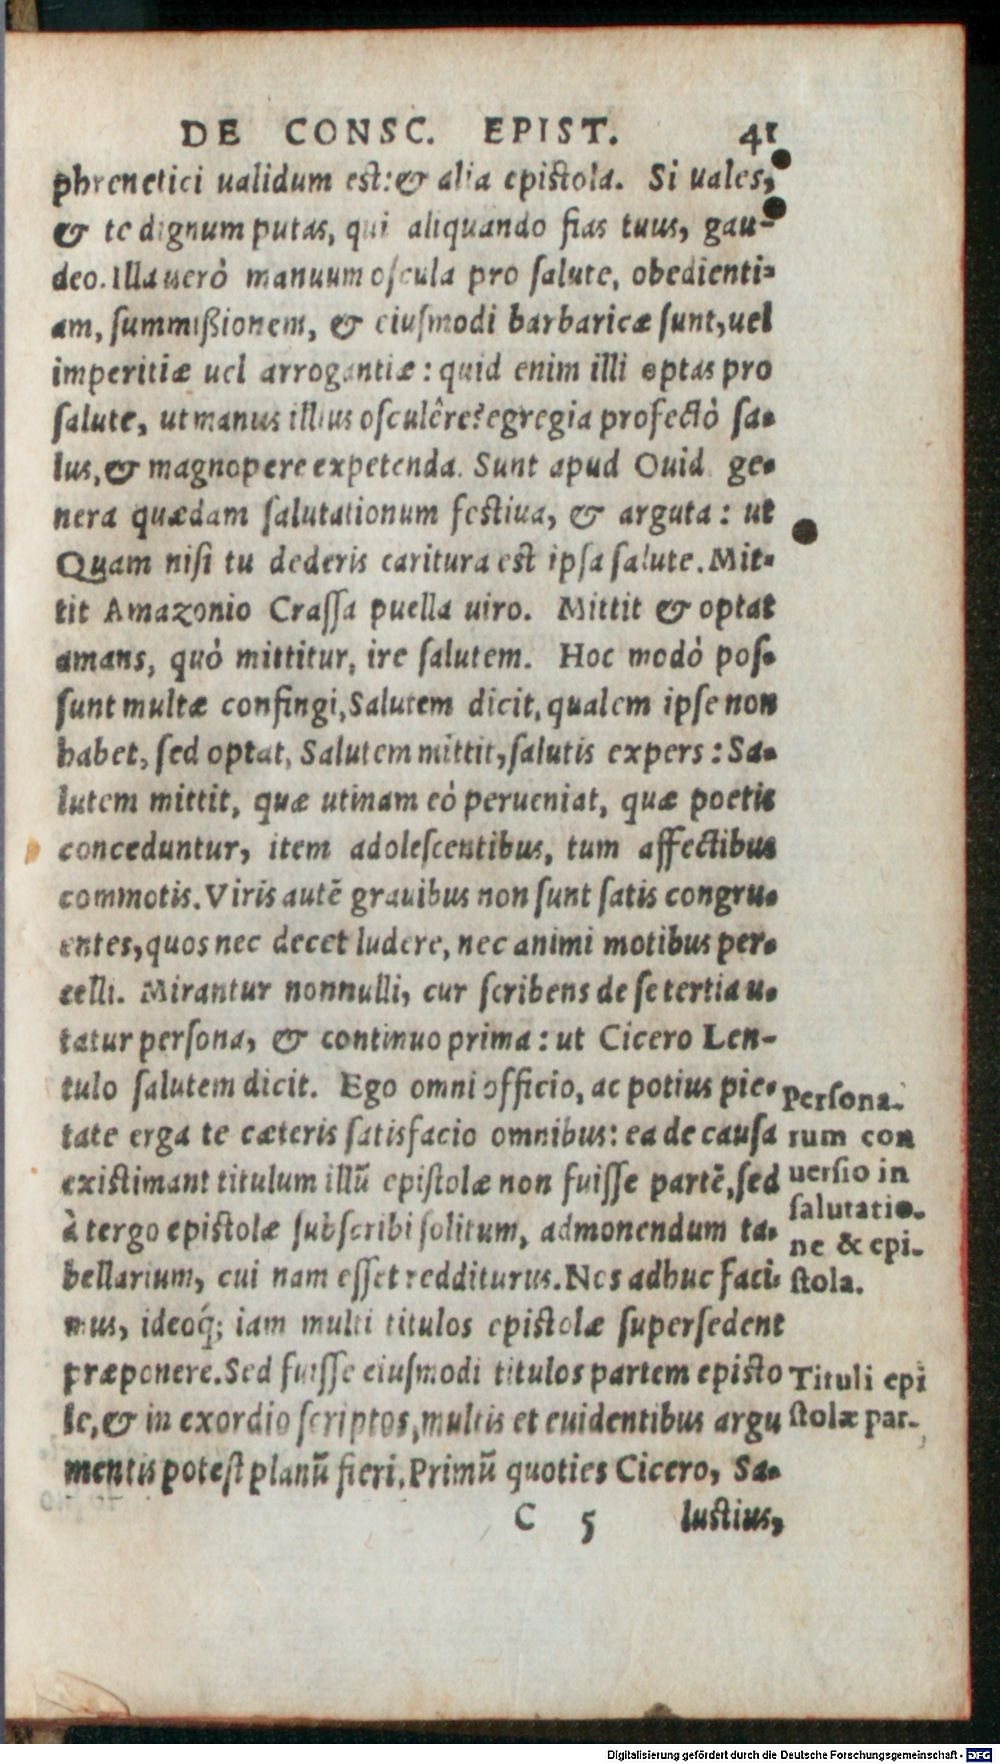 DE CONSC. EPIST. 41
phrenetici ualidum est: & alia epistola. Si uales,
& te dignum putas, qui aliquando fias tuus, gau-
deo. Illa uerò manuum oscula pro salute, obedienti-
am, summißionem, & eiusmodi barbaricæ sunt, uel
imperitiæ uel arrogantiæ: quid enim illi optas pro
salute, ut manus illius osculêre? egregia profectò sa-
lus, & magnopere expetenda. Sunt apud Ouid. ge-
nera quædam salutationum festiua, & arguta: ut
Quam nisi tu dederis caritura est ipsa salute. Mit-
tit Amazonio Cressa puella uiro. Mittit & optat
amans, quò mittitur, ire salutem. Hoc modò pos-
sunt multæ confingi, Salutem dicit, qualem ipse non
habet, sed optat, Salutem mittit, salutis expers: Sa-
lutem mittit, quæ utinam eò perueniat, quæ poetis
conceduntur, item adolescentibus, tum affectibus
commotis. Viris autē grauibus non sunt satis congru-
entes, quos nec decet ludere, nec animi motibus per-
celli. Mirantur nonnulli, cur scribens de se tertia u-
tatur persona, & continuo prima: ut Cicero Len-
tulo salutem dicit. Ego omni officio, ac potius pie-
tate erga te cæteris satisfacio omnibus: ea de causa
existimant titulum illū epistolæ non fuisse partē, sed
à tergo epistolæ subscribi solitum, admonendum ta-
bellarium, cui nam esset redditurus. Nos adhuc faci-
mus, ideoq́; iam multi titulos epistolæ supersedent
præponere. Sed fuisse eiusmodi titulos partem episto
le, & in exordio scriptos, multis et euidentibus argu
mentis potest planū fieri. Primū quoties Cicero, Sa-
C 5 lustius,
Persona-
rum con
uersio in
salutatio-
ne & epi-
stola.
Tituli epi
stolæ par-
Digitalisierung gefördert durch die Deutsche Forschungsgemeinschaft - DFG